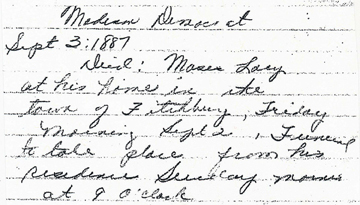 Madison Democrat
Sept 3, 1887
Died: Moses Lacy
at his home in the
town of Fitchburg, Friday
Morning Sept 2, Funeral
to take place from his
residence Sunday morning
at 9 O'Clock